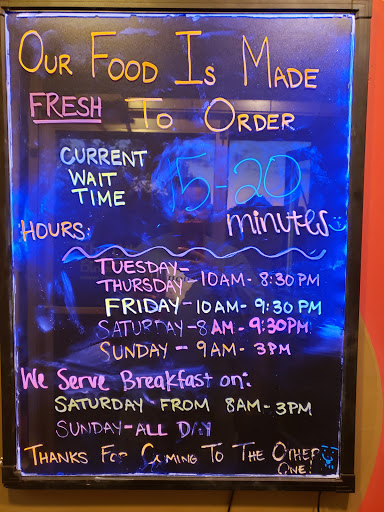 OUR FOOD IS MADE
FRESH TO ORDER
CURRENT
WAIT
TIME
15-20
minutes
HOURS:
TUESDAY-
THURSDAY - 10AM - 8:30 PM
FRIDAY - 10AM - 9:30 PM
SATURDAY - 8 AM - 9:30PM
SUNDAY - 9AM - 3PM
We Serve Breakfast on:
SATURDAY FROM 8AM - 3PM
SUNDAY - ALL DAY
THANKS FOR COMING TO THE OTHER
ONE!